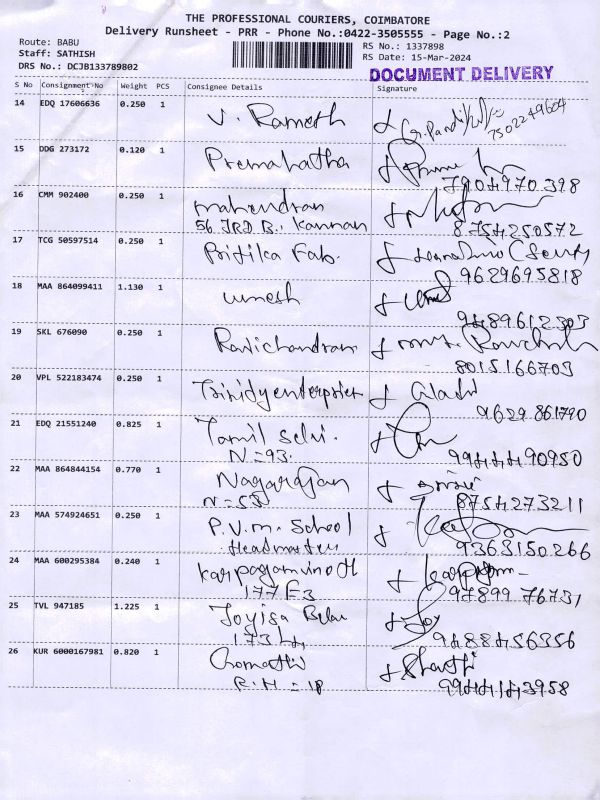 THE PROFESSIONAL COURIERS, COIMBATORE
Delivery Runsheet - PRR - Phone No.:0422-3505555 - Page No.:2
Route: BABU
Staff: SATHISH
DRS No.: DCJB133789802
RS No.: 1337898
RS Date: 15-Mar-2024
DOCUMENT DELIVERY
S No Consignment No Weight PCS Consignee Details Signature
14 EDQ 17606636 0.250 1 V. Ramesh
7502249604
15 DDG 273172 0.120 1 Premalatha
7904970398
16 CMM 902400 0.250 1 mahendran
56, 3RD B., Kannan 8754250572
17 TCG 50597514 0.250 1 Pritika Fab.
9629695818
18 MAA 864099411 1.130 1 umesh
9489612303
19 SKL 676090 0.250 1 Ravichandran
8015166703
20 VPL 522183474 0.250 1 Trinidyenterprises
9629861790
21 EDQ 21551240 0.825 1 Tamil Selvi.
N=93. 9944490950
22 MAA 864844154 0.770 1 Nagarajan
N=53 8754273211
23 MAA 574924651 0.250 1 P.V.m. School
Headmaster 9363150266
24 MAA 600295384 0.240 1 karpagamvinoth
177 E3 9789976731
25 TVL 947185 1.225 1 Joyisa
173 H, 9488456356
26 KUR 6000167981 0.820 1 Gomathi
R.H = 18 9944143958